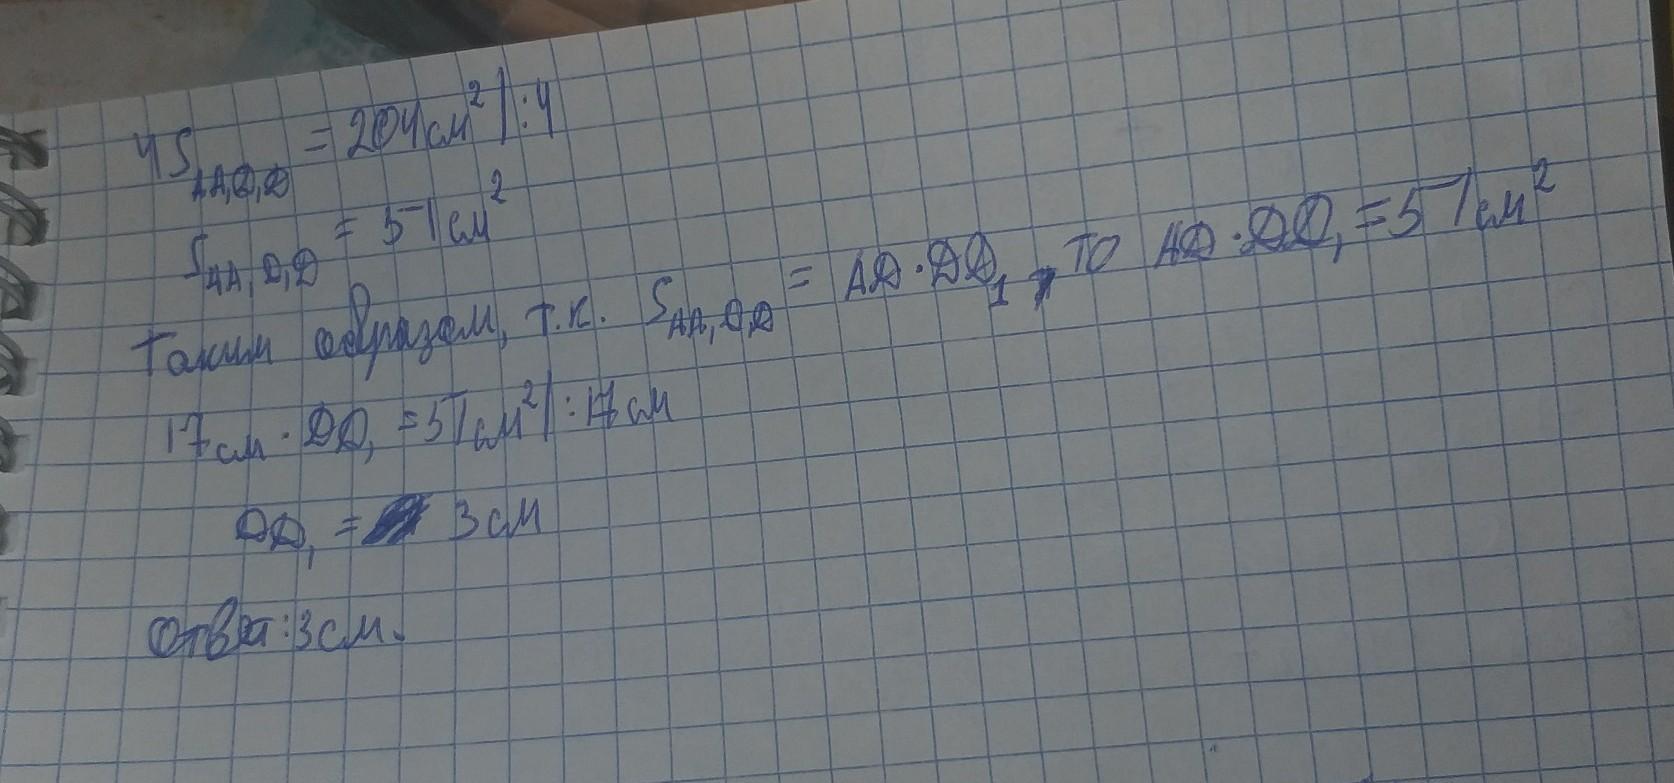 4S_AA₁D₁D = 204 см² |:4
S_AA₁D₁D = 51 см²
Таким образом, т.к. S_AA₁D₁D = AD · DD₁, то AD · DD₁ = 51 см²
17 см · DD₁ = 51 см² |: 17 см
DD₁ = 3 см
Ответ: 3 см.